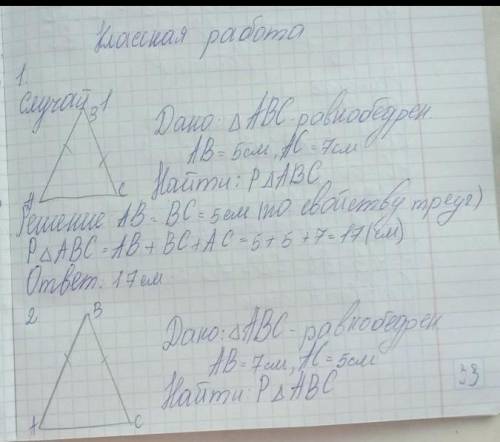 Классная работа
1.
Случай 1
B
Дано: △ABC-равнобедрен.
AB = 5см, AC = 7см
Найти: P△ABC
A
C
Решение AB = BC = 5см (по свойству треуг)
P△ABC = AB + BC + AC = 5 + 5 + 7 = 17 (см)
Ответ: 17см
2
B
Дано: △ABC-равнобедрен
AB = 7см, AC = 5см
Найти P△ABC
A
C
33